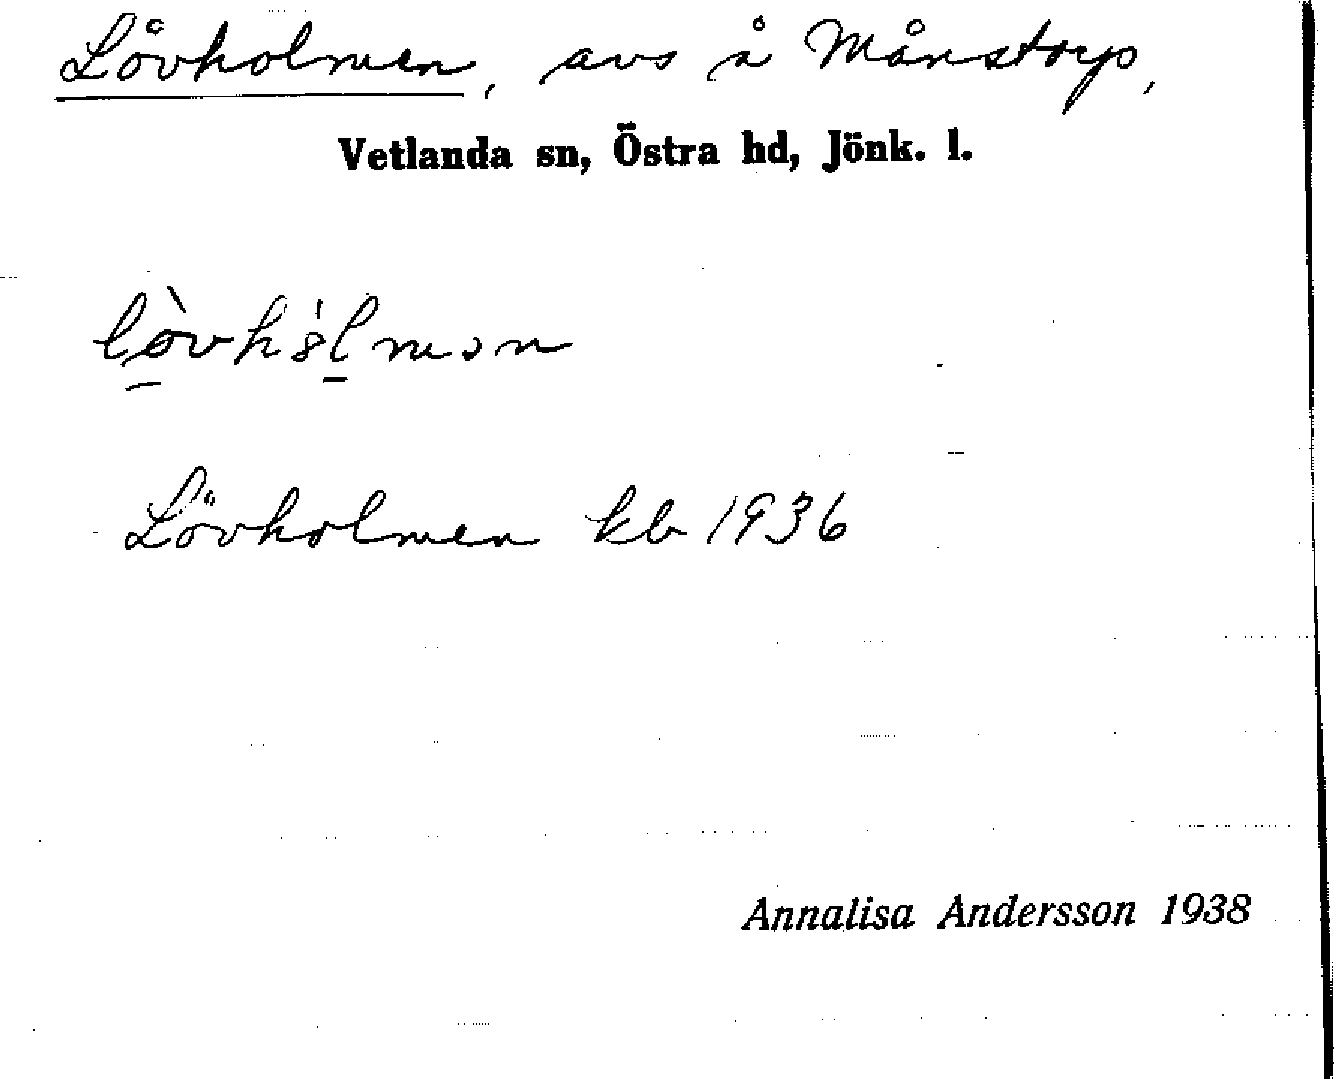 Lövholmen, avs å Månstorp,
Vetlanda sn, Östra hd, Jönk. l.
Lövholmen kb 1936
Annalisa Andersson 1938